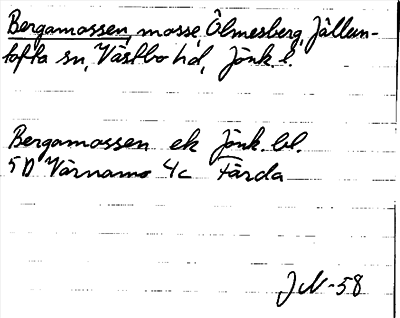 Bergamossen, mosse, Ölmesberg, Jällun-
tofta sn, Västbo hd, Jönk. l.
Bergamossen ek Jönk. bl.
5D Värnamo 4c Färda
JN-58